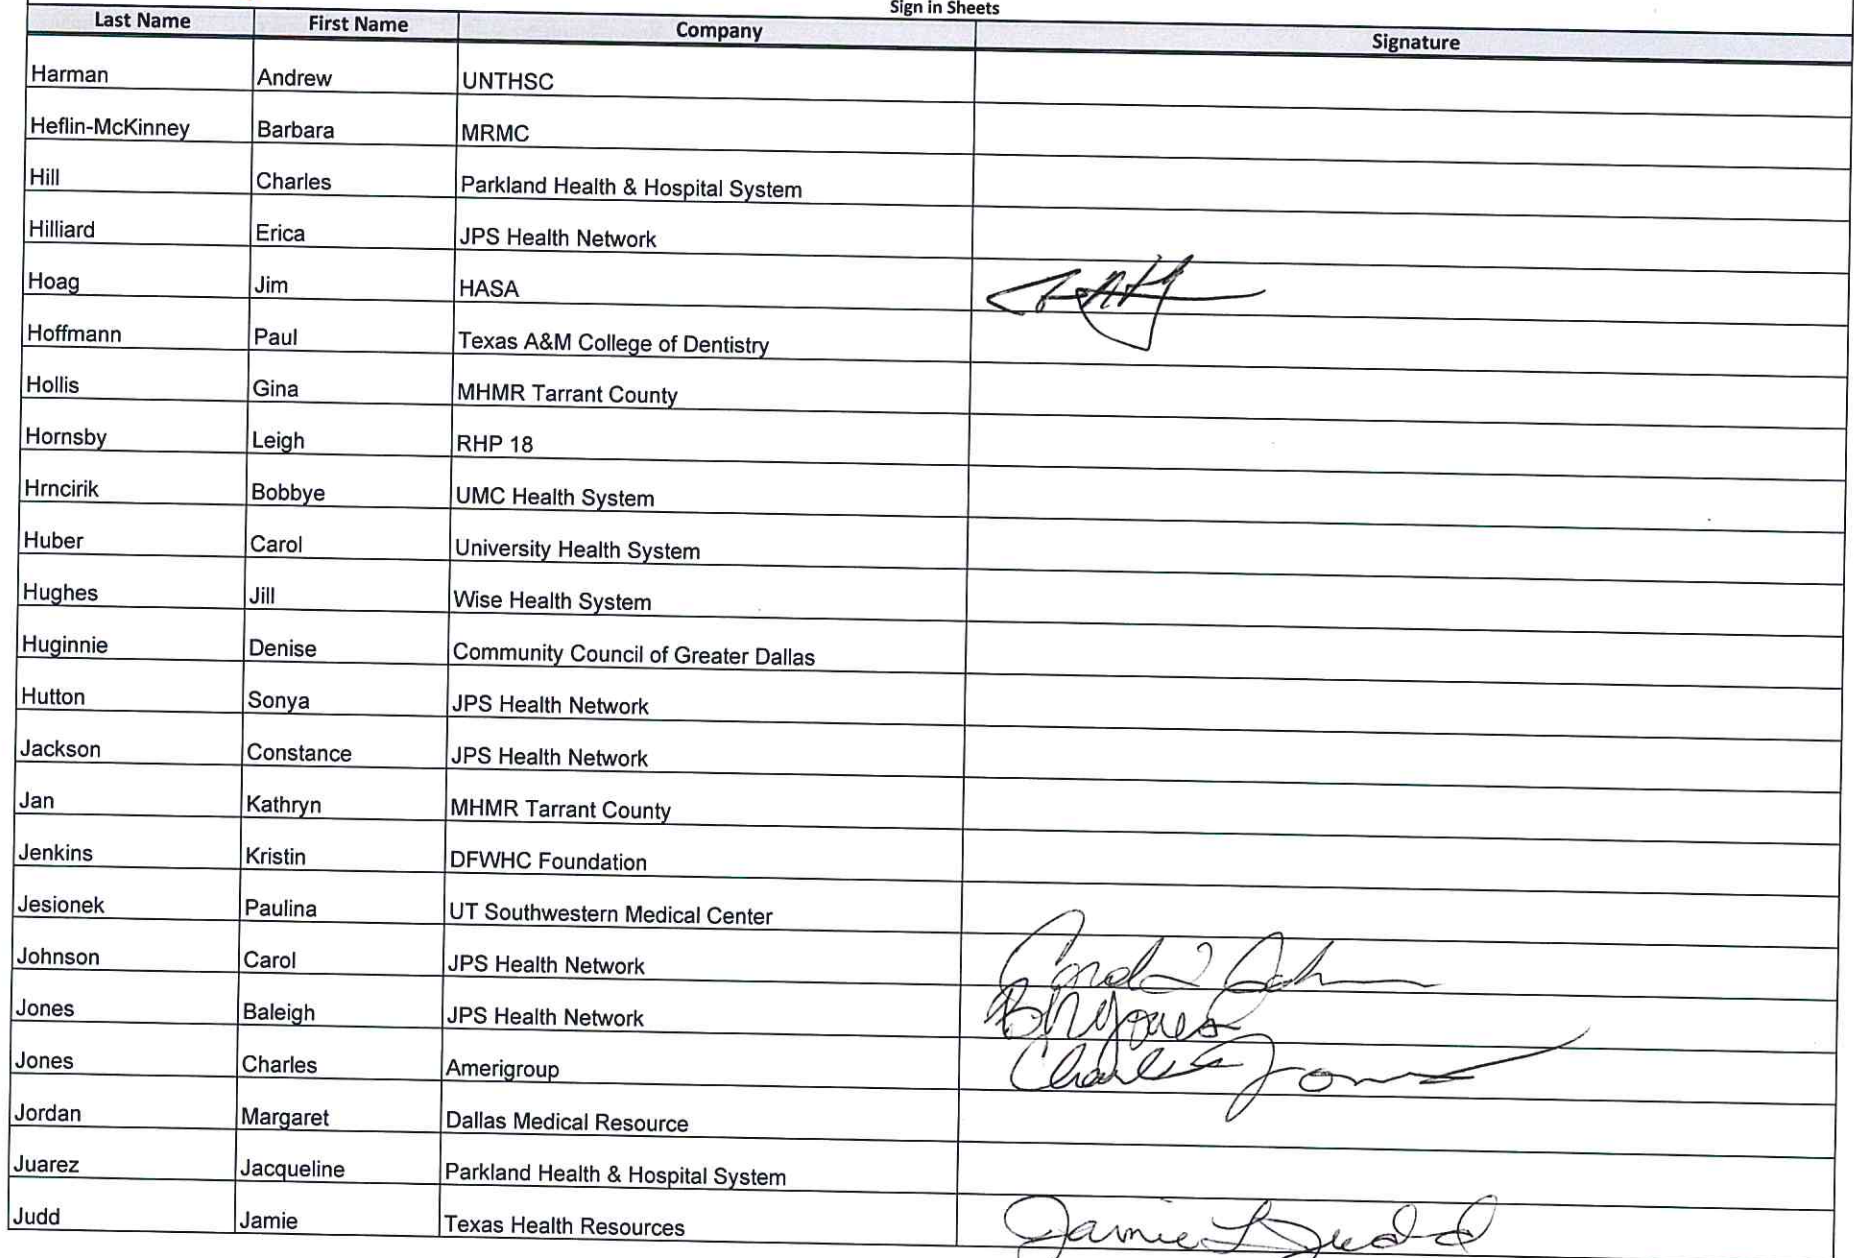 Sign in Sheets
Last Name First Name Company Signature
Harman Andrew UNTHSC
Heflin-McKinney Barbara MRMC
Hill Charles Parkland Health & Hospital System
Hilliard Erica JPS Health Network
Hoag Jim HASA
Hoffmann Paul Texas A&M College of Dentistry
Hollis Gina MHMR Tarrant County
Hornsby Leigh RHP 18
Hrncirik Bobbye UMC Health System
Huber Carol University Health System
Hughes Jill Wise Health System
Huginnie Denise Community Council of Greater Dallas
Hutton Sonya JPS Health Network
Jackson Constance JPS Health Network
Jan Kathryn MHMR Tarrant County
Jenkins Kristin DFWHC Foundation
Jesionek Paulina UT Southwestern Medical Center
Johnson Carol JPS Health Network Carol
Jones Baleigh JPS Health Network Jones
Jones Charles Amerigroup Charles Jones
Jordan Margaret Dallas Medical Resource
Juarez Jacqueline Parkland Health & Hospital System
Judd Jamie Texas Health Resources Jamie L Judd